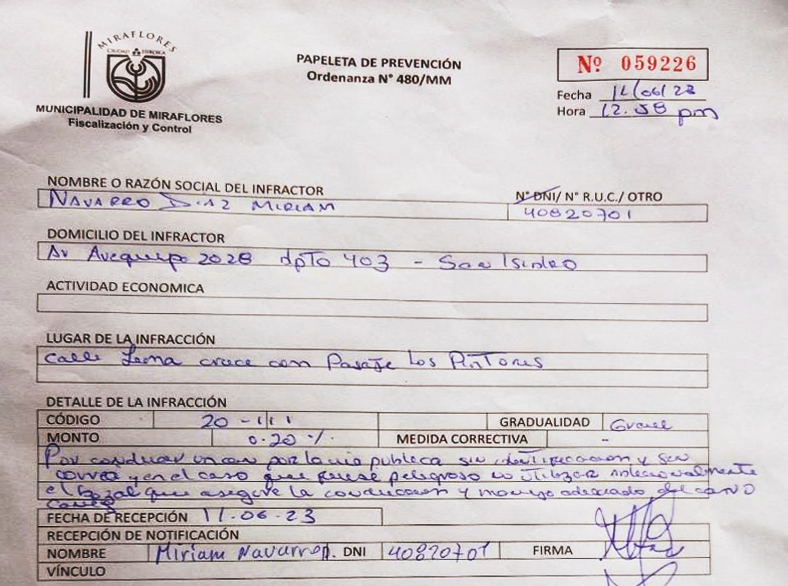 MIRAFLORES
CIUDAD HEROICA
MUNICIPALIDAD DE MIRAFLORES
Fiscalización y Control
PAPELETA DE PREVENCIÓN
Ordenanza N° 480/MM
Nº 059226
Fecha 11/06/23
Hora 12.58 pm
NOMBRE O RAZÓN SOCIAL DEL INFRACTOR N° DNI/ N° R.U.C./ OTRO
NAVARRO DIAZ MIRIAM 40820701
DOMICILIO DEL INFRACTOR
Av Arequipa 2028 dpto 403 - San Isidro
ACTIVIDAD ECONOMICA
LUGAR DE LA INFRACCIÓN
Calle cruce con Pasaje Los Pintores
DETALLE DE LA INFRACCIÓN
CÓDIGO 20-111 GRADUALIDAD Grave
MONTO 0.20 % MEDIDA CORRECTIVA -
Por conducir un can por la via publica sin identificacion y sin
correa y en el caso que fuese peligroso no utilizar adicionalmente
el bozal que asegure la conduccion y manejo adecuado del
FECHA DE RECEPCIÓN 11.06.23
RECEPCIÓN DE NOTIFICACIÓN
NOMBRE Miriam Navarro D. DNI 40820701 FIRMA
VÍNCULO